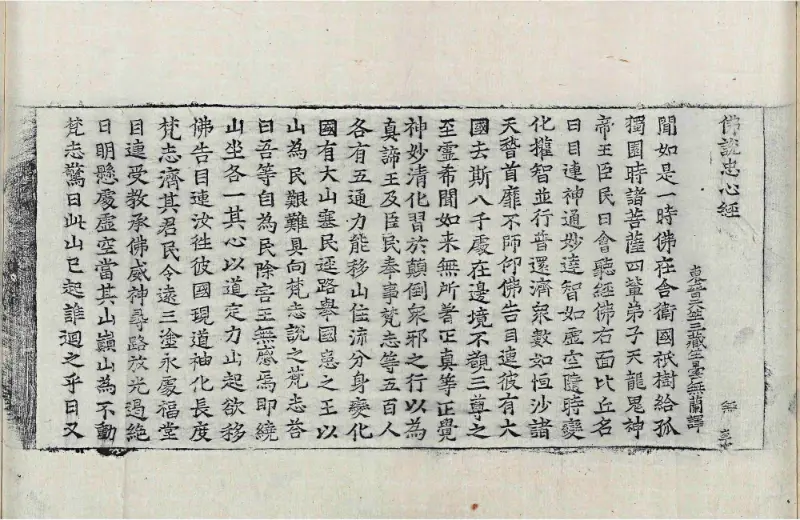 佛說忠心經
東晉天竺三藏竺曇無蘭譯
聞如是一時佛在舍衛國祇樹給孤
獨園時諸菩薩四輩弟子天龍鬼神
帝王臣民日會聽經佛右面比丘名
曰目連神通妙達智如虛空隨時變
化權智並行普還濟衆數如恒沙諸
天稽首靡不師仰佛告目連彼有大
國去斯八千處在邊境不覩三尊之
至靈希聞如來無所著正真等正覺
神妙清化習於顛倒衆邪之行以為
真諦王及臣民奉事梵志等五百人
各有五通力能移山住流分身變化
國有大山塞民逕路舉國患之王以
山為民艱難具向梵志說之梵志荅
曰吾等自為民除害王無慼焉即繞
山坐各一其心以道定力山起欲移
佛告目連汝往彼國現道神化長度
梵志濟其君民令遠三塗永處福堂
目連受教承佛威神尋路放光遏絶
日明懸處虛空當其山巔山為不動
梵志驚曰此山已起誰迴之乎日又